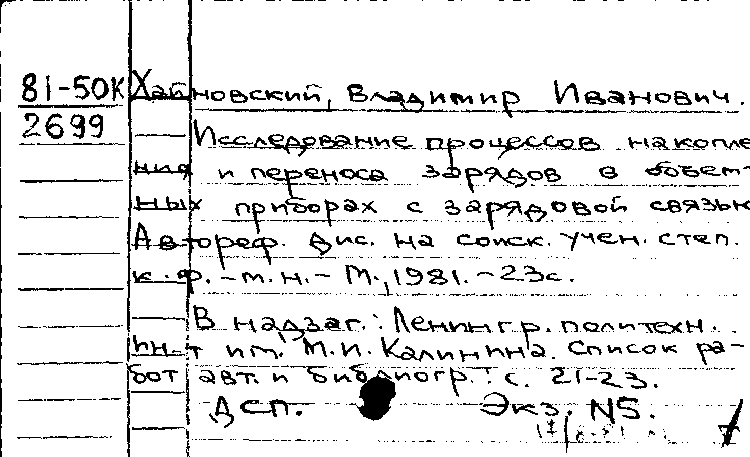 81-50К Хайновский, Владимир Иванович.
2699 Исследование процессов накопле
ния и переноса зарядов в объем-
ных приборах с зарядовой связью
Автореф. дис. на соиск. учен. степ.
к.ф.-м.н.- М., 1981.-23с.
В надзаг.: Ленингр. политехн.
ин-т им. М.И. Калинина. Список ра-
бот авт. и библиогр.: с. 21-23.
ДСП. Экз. N5.